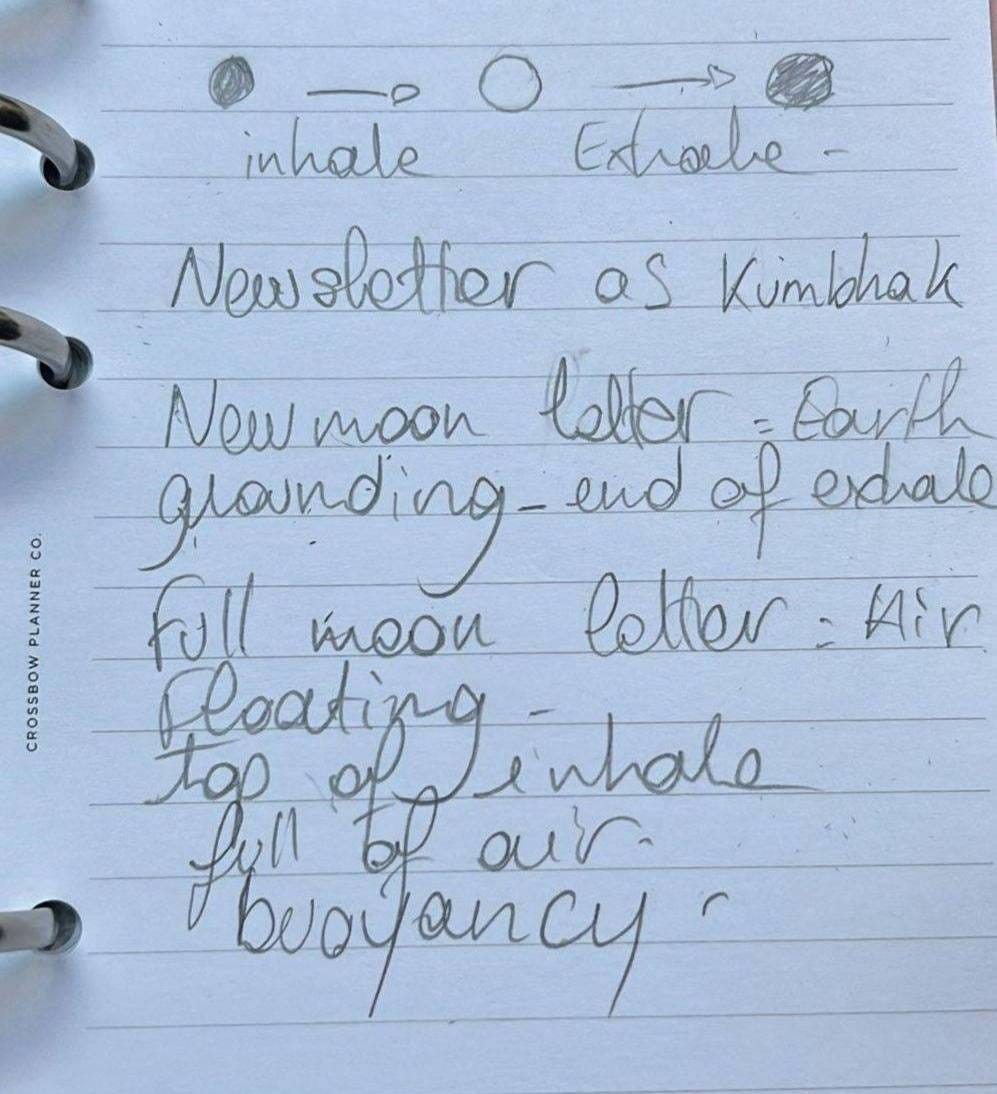 inhale Exhale -
Newsletter as Kumbhak
New moon letter = Earth
grounding - end of exhale
full moon letter = Air
floating -
top of inhale
full of air.
buoyancy -
CROSSBOW PLANNER CO.